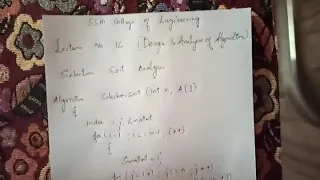 SSM College of Engineering
Lecture No 12 (Design & Analysis of Algorithm)
Selection Sort Analysis
Algorithm Selectionsort (int n, A[])
{
index i, j, smallest
for (i=1 ; i<=n-1 ; i++)
{
Smallest = i;
for (j=i+1 ; j<=n ; j++)